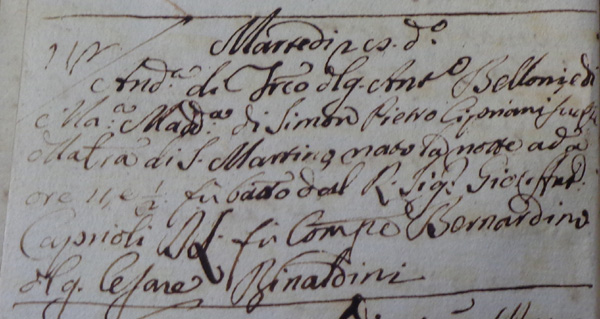 Martedi 2 es. d.º
And.ª di Frco dlq. Antº Belloni, e di
Ma.ª Madd.ª di Simon Pietro Cipriani
di S. Martino nato la notte ad
ore 11, e ½ fù batto dal R. Sig.
Caprioli fù Compe Bernardino
dlq. Cesare Rinaldini